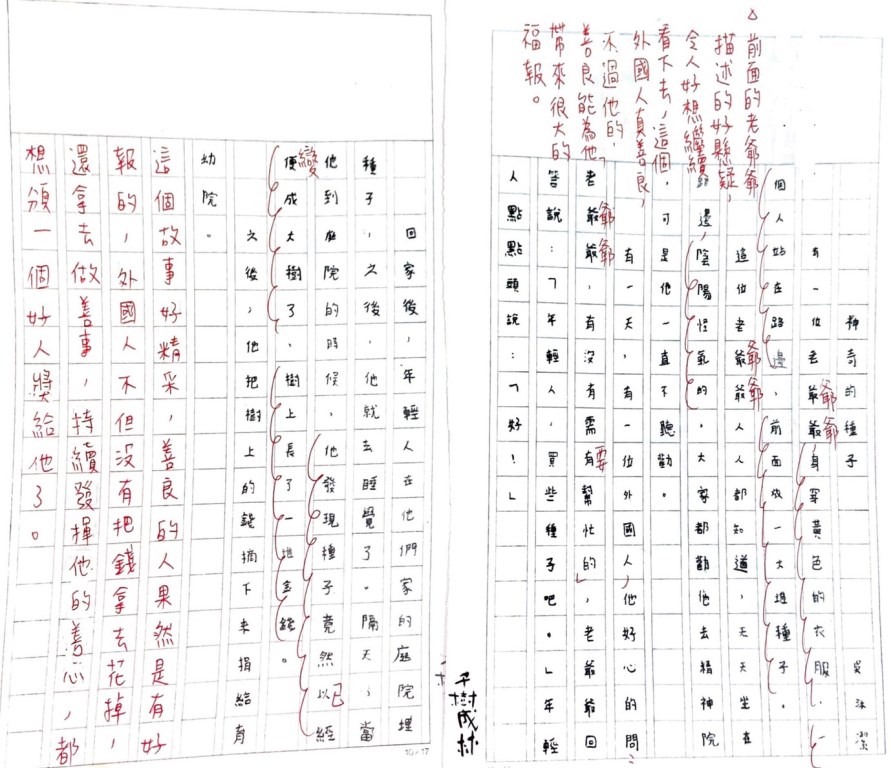 △前面的老爺爺
描述的好懸疑，
令人好想繼續
看下去，這個
外國人真善良，
不過他的
善良能為他
帶來很大的
福報。
神奇的種子
吳沐潔
有一位老爺爺，身穿黃色的衣服，一
個人站在路邊，前面放一大堆種子。
這位老爺爺，人人都知道，天天坐在
路邊，陰陽怪氣的。大家都勸他去精神院
，可是他一直不聽勸。
有一天，有一位外國人，他好心的問：「
老爺爺，有沒有需要幫忙的」，老爺爺回
答說：「年輕人，買些種子吧。」年輕
人點點頭說：「好！」
千樹成林
回家後，年輕人在他們家的庭院埋
種子，之後他就去睡覺了。隔天，當
他到庭院的時候，他發現種子竟然已經
變成大樹了，樹上長了一堆金錢。
之後，他把樹上的錢摘下來捐給育
幼院。
這個故事好精采，善良的人果然是有好
報的，外國人不但沒有把錢拿去花掉，
還拿去做善事，持續發揮他的善心，都
想頒一個好人獎給他了。
10/17